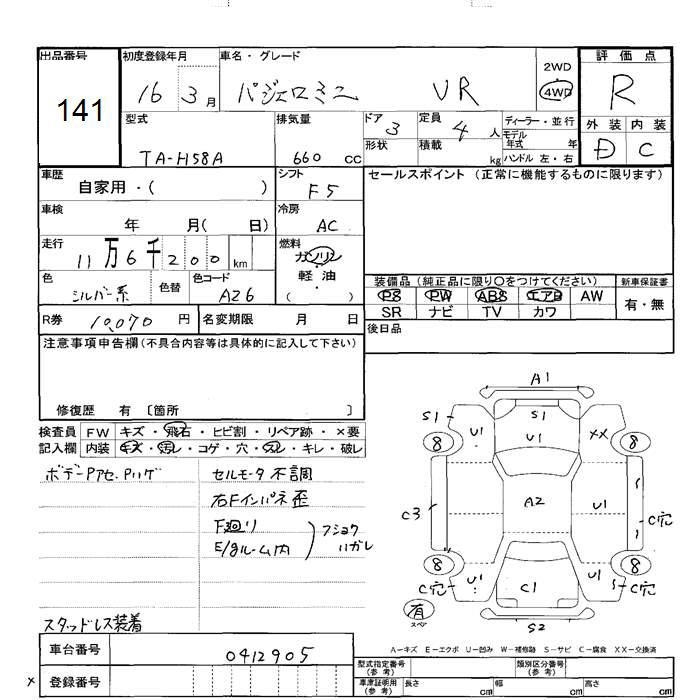 出品番号 初度登録年月 車名・グレード 評価点
141
16 3月 パジェロミニ VR 2WD 4WD R
外装 内装
D C
型式 排気量 ドア 3 定員 4人 ディーラー・並行
TA-H58A 660 CC 形状 積載 kg モデル年式 年
ハンドル 左・右
車歴 自家用・( ) シフト F5 セールスポイント(正常に機能するものに限ります)
車検 年 月( 日) 冷房 AC
走行 11万6千200km 燃料 ガソリン
軽・油
( )
色 シルバー系 色替 色コード A26
装備品(純正品に限り○をつけてください) 新車保証書
PS PW ABS エアB AW 有・無
SR ナビ TV カワ
R券 10,070円 名変期限 月 日 後日品
注意事項申告欄(不具合内容等は具体的に記入して下さい)
修復歴 有 〔箇所 〕
検査員 FW キズ・飛石・ヒビ割・リペア跡・×要
記入欄 内装 キズ・汚レ・コゲ・穴・スレ・キレ・破レ
ボデーPアセ、Pハゲ
セルモータ不調
右Fインパネ歪
F廻り
E/gルーム内
フショク
ハガレ
スタッドレス装着
A1
S1 U1 S1 XX
8 U1 8
C3 A2 U1 C穴
8 8
C穴 U1 C1 U1 C穴
有
スペア
S2
A-キズ E-エクボ U-凹み W-補修跡 S-サビ C-腐食 XX-交換済
車台番号 0412905
× 登録番号
型式指定番号(参考) 類別区分番号(参考)
車庫証明用(参考) 長さ cm 幅 cm 高さ cm